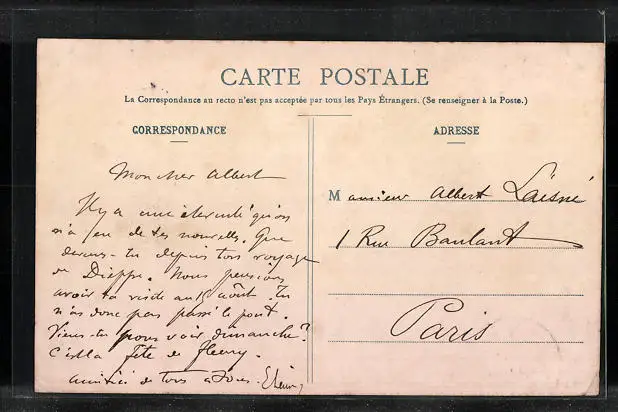 CARTE POSTALE
La Correspondance au recto n'est pas acceptée par tous les Pays Étrangers. (Se renseigner à la Poste.)
CORRESPONDANCE
Mon cher Albert
Il y a une éternité qu'on
n'a eu de tes nouvelles. Que
deviens-tu depuis ton voyage
à Dieppe. Nous pensions
avoir ta visite au 15 août. Tu
n'as donc pas passé le pont.
Viens-tu nous voir dimanche?
C'est la fête de Fleury.
de tous
ADRESSE
Monsieur Albert Laisné
1 Rue Baulant
Paris